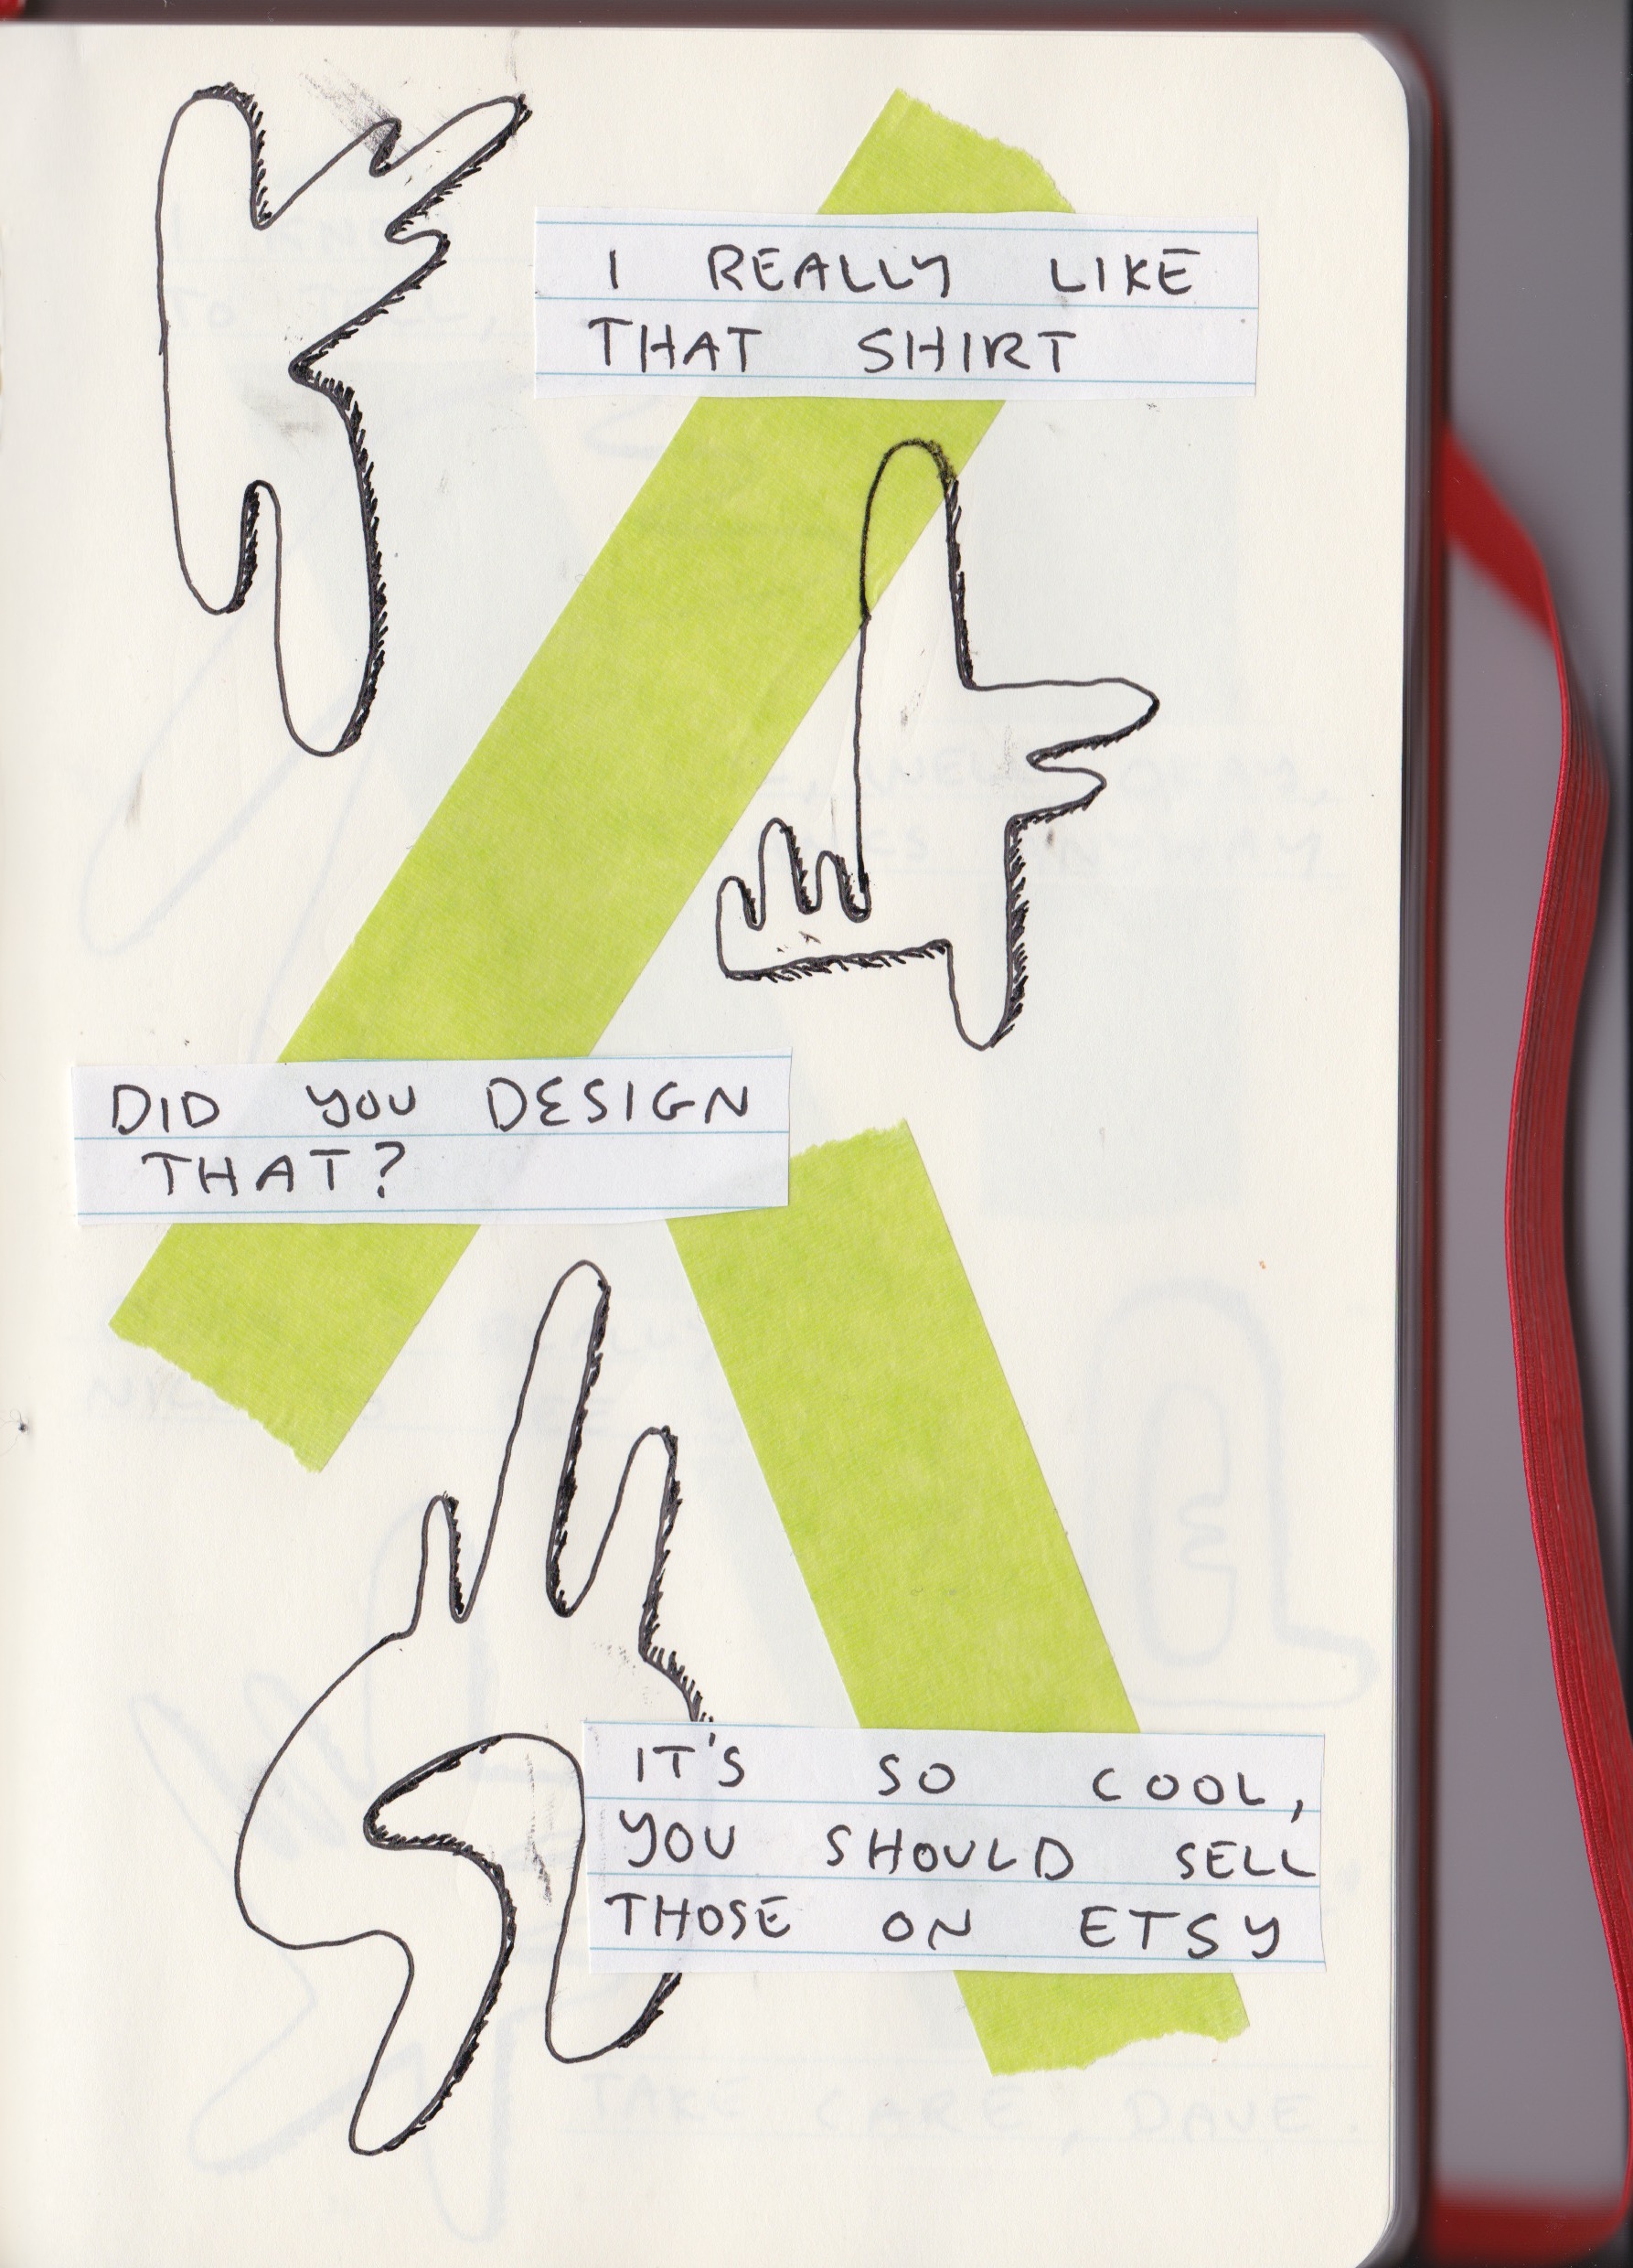 I REALLY LIKE
THAT SHIRT
DID YOU DESIGN
THAT?
IT'S SO COOL,
YOU SHOULD SELL
THOSE ON ETSY
TAKE CARE, DAVE.